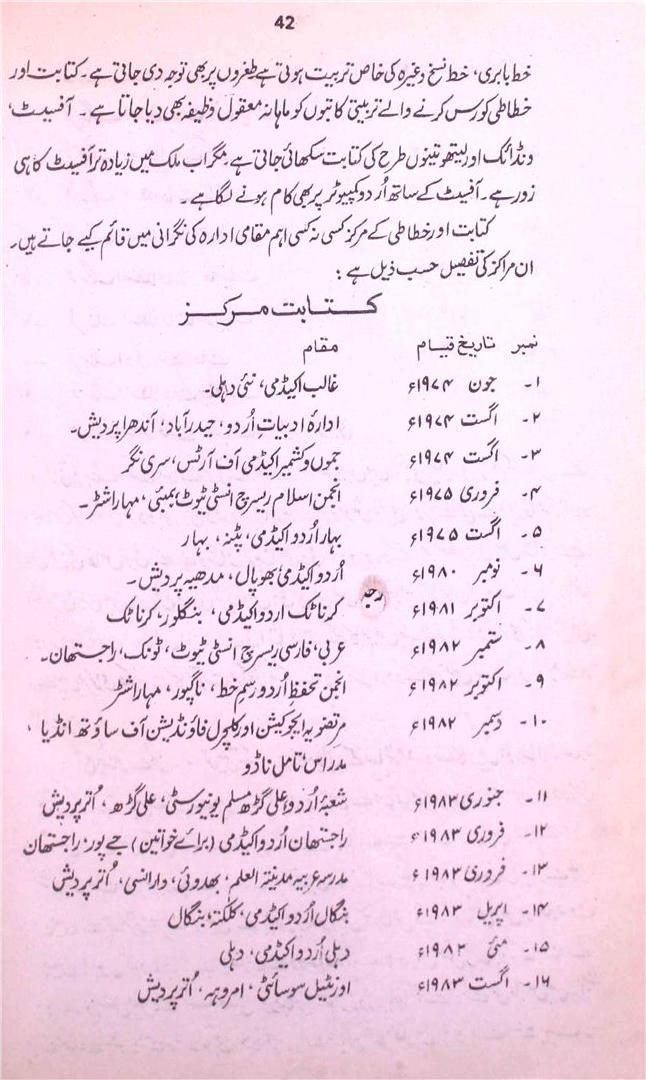 42
خط بابری، خط نسخ وغیرہ کی خاص تربیت ہوتی ہے طغروں پر بھی توجہ دی جاتی ہے۔ کتابت اور
خطاطی کورس کرنے والے تربیتی کاتبوں کو ماہانہ معقول وظیفہ بھی دیا جاتا ہے۔ آفسیٹ،
ونڈائک اور لیتھو تینوں طرح کی کتابت سکھائی جاتی ہے، مگر اب ملک میں زیادہ تر آفسیٹ کا ہی
زور ہے۔ آفسیٹ کے ساتھ اُردو کمپیوٹر پر بھی کام ہونے لگا ہے۔
کتابت اور خطاطی کے مرکز کسی نہ کسی اہم مقامی ادارہ کی نگرانی میں قائم کیے جاتے ہیں۔
ان مراکز کی تفصیل حسب ذیل ہے:
کتابت مرکز
نمبر تاریخ قیام مقام
۱۔ جون ۱۹۷۴ء غالب اکیڈمی، نئی دہلی۔
۲۔ اگست ۱۹۷۴ء ادارۂ ادبیاتِ اُردو، حیدرآباد، آندھرا پردیش۔
۳۔ اگست ۱۹۷۴ء جموں و کشمیر اکیڈمی آف آرٹس، سری نگر
۴۔ فروری ۱۹۷۵ء انجمن اسلام ریسرچ انسٹی ٹیوٹ، بمبئی، مہاراشٹر۔
۵۔ اگست ۱۹۷۵ء بہار اُردو اکیڈمی، پٹنہ، بہار
۶۔ نومبر ۱۹۸۰ء اُردو اکیڈمی، بھوپال، مدھیہ پردیش۔
۷۔ اکتوبر ۱۹۸۱ء کرناٹک اردو اکیڈمی، بنگلور، کرناٹک
۸۔ ستمبر ۱۹۸۲ء عربی، فارسی ریسرچ انسٹی ٹیوٹ، ٹونک، راجستھان۔
۹۔ اکتوبر ۱۹۸۲ء انجمن تحفظِ اُردو رسمِ خط، ناگپور، مہاراشٹر
۱۰۔ دسمبر ۱۹۸۲ء مرتضویہ ایجوکیشن اور کلچرل فاؤنڈیشن آف ساؤتھ انڈیا،
مدراس، تامل ناڈو
۱۱۔ جنوری ۱۹۸۳ء شعبۂ اُردو، علی گڑھ مسلم یونیورسٹی، علی گڑھ، اُتر پردیش
۱۲۔ فروری ۱۹۸۳ء راجستھان اُردو اکیڈمی (برائے خواتین) جے پور، راجستھان
۱۳۔ فروری ۱۹۸۳ء مدرسہ عربیہ مدینۃ العلم، بھدوئی، وارانسی، اُتر پردیش
۱۴۔ اپریل ۱۹۸۳ء بنگال اُردو اکیڈمی، کلکتہ، بنگال
۱۵۔ مئی ۱۹۸۳ء دہلی اُردو اکیڈمی، دہلی
۱۶۔ اگست ۱۹۸۳ء اورنٹیل سوسائٹی، امروہہ، اُتر پردیش